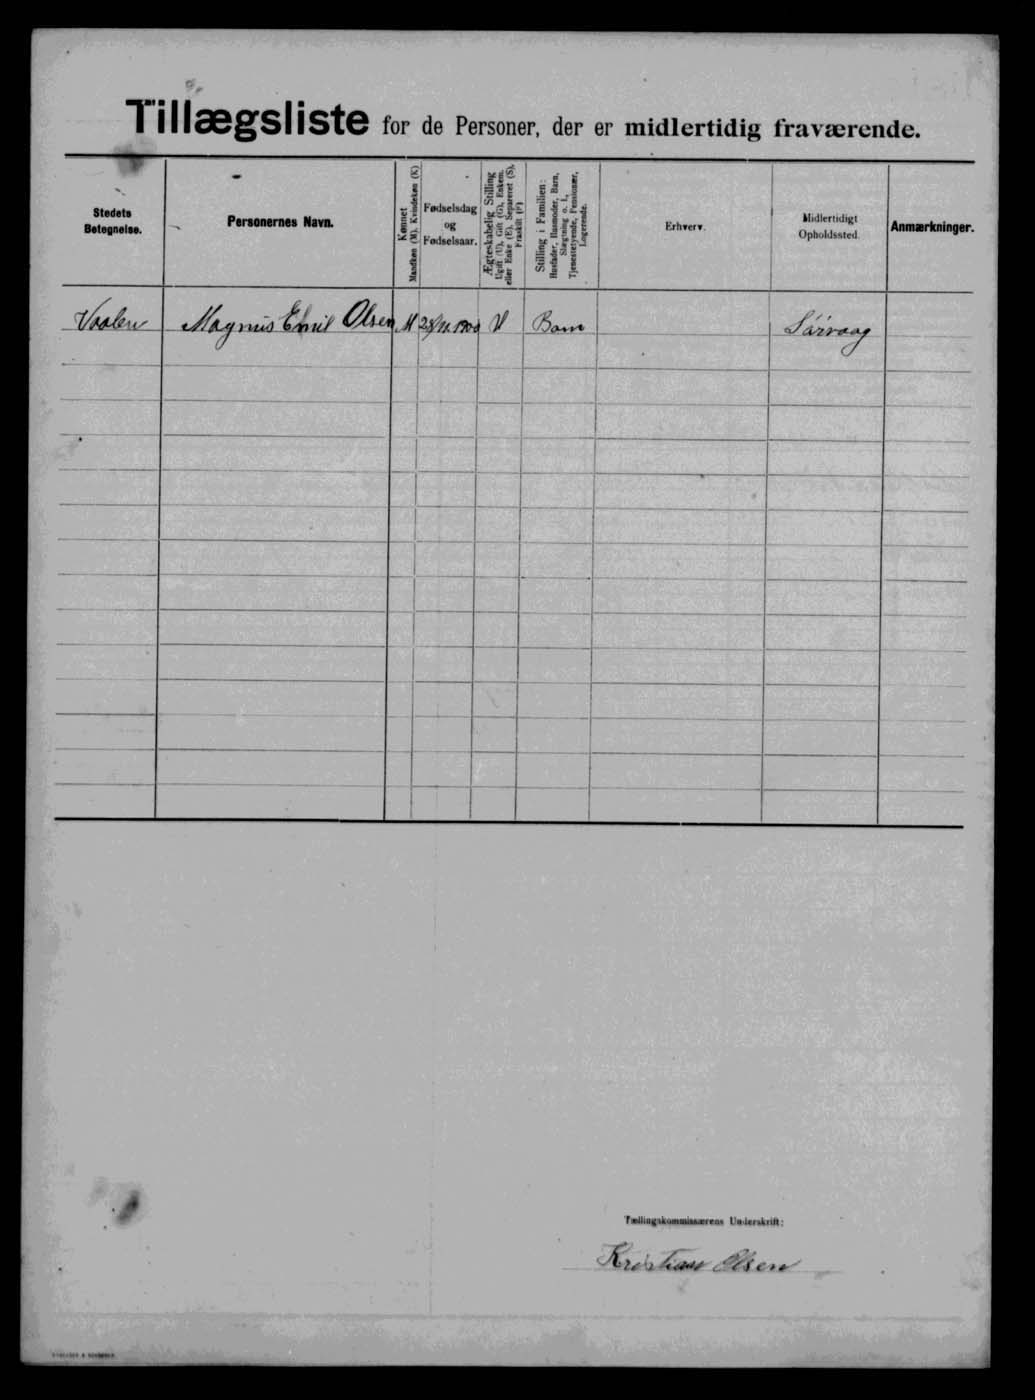 Tillægsliste for de Personer, der er midlertidig fraværende.
Stedets Betegnelse.
Personernes Navn.
Kønnet Mandkøn (M). Kvindekøn (K)
Fødselsdag og Fødselsaar.
Ægteskabelig Stilling Ugift (U), Gift (G), Enkem. eller Enke (E), Separeret (S), Fraskilt (F)
Stilling i Familien: Husfader, Husmoder, Barn, Slægtning o. l., Tjenestetyende, Pensionær, Logerende.
Erhverv.
Midlertidigt Opholdssted.
Anmærkninger.
Vaalen Magnus Emil Olsen M 1900 U Barn Sørvaag
Tællingskommissærens Underskrift:
Kristian Olsen